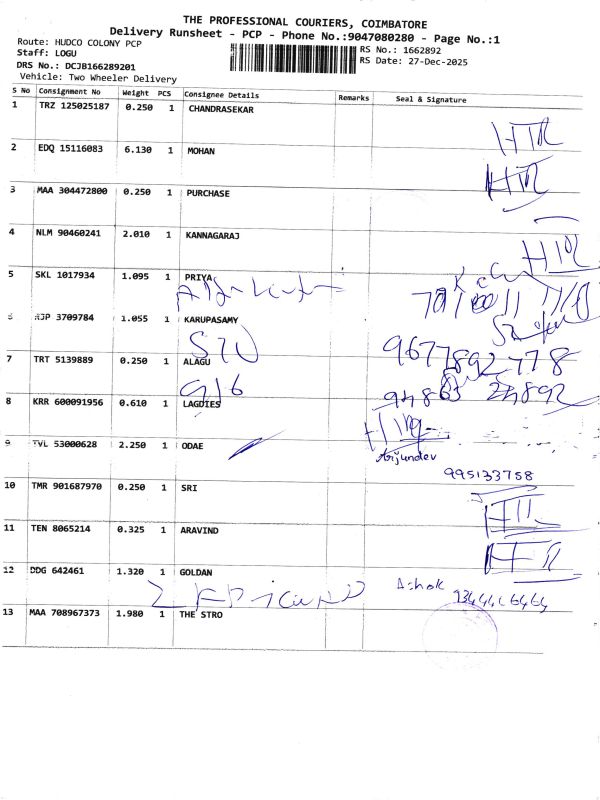 THE PROFESSIONAL COURIERS, COIMBATORE
Delivery Runsheet - PCP - Phone No.:9047080280 - Page No.:1
Route: HUDCO COLONY PCP
Staff: LOGU
DRS No.: DCJB166289201
Vehicle: Two Wheeler Delivery
RS No.: 1662892
RS Date: 27-Dec-2025
S No Consignment No Weight PCS Consignee Details Remarks Seal & Signature
1 TRZ 125025187 0.250 1 CHANDRASEKAR
2 EDQ 15116083 6.130 1 MOHAN
3 MAA 304472800 0.250 1 PURCHASE
4 NLM 90460241 2.010 1 KANNAGARAJ
5 SKL 1017934 1.095 1 PRIYA
6 AJP 3709784 1.055 1 KARUPASAMY
9677892778
7 TRT 5139889 0.250 1 ALAGU
8 KRR 600091956 0.610 1 LAGDIES
9 TVL 53000628 2.250 1 ODAE
Arjundev
995133758
10 TMR 901687970 0.250 1 SRI
11 TEN 8065214 0.325 1 ARAVIND
12 DDG 642461 1.320 1 GOLDAN
Ashok
13 MAA 708967373 1.980 1 THE STRO